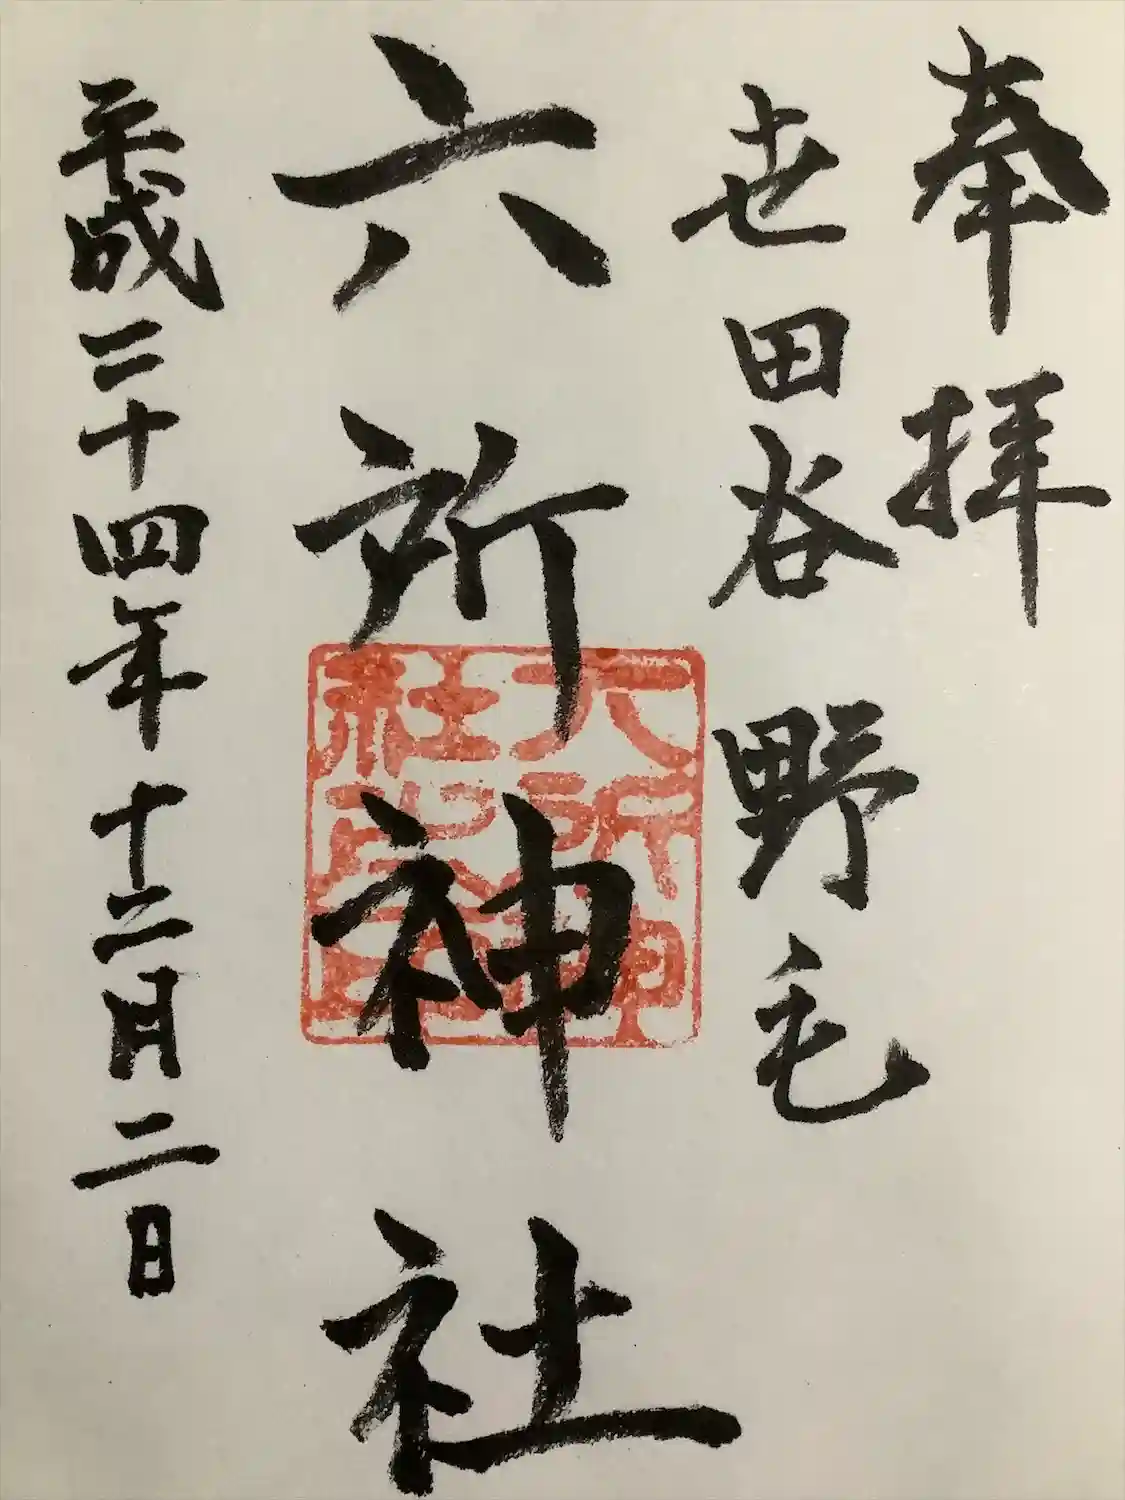 奉拝
世田谷野毛
六所神社
平成二十四年十二月二日
六所神
社之印